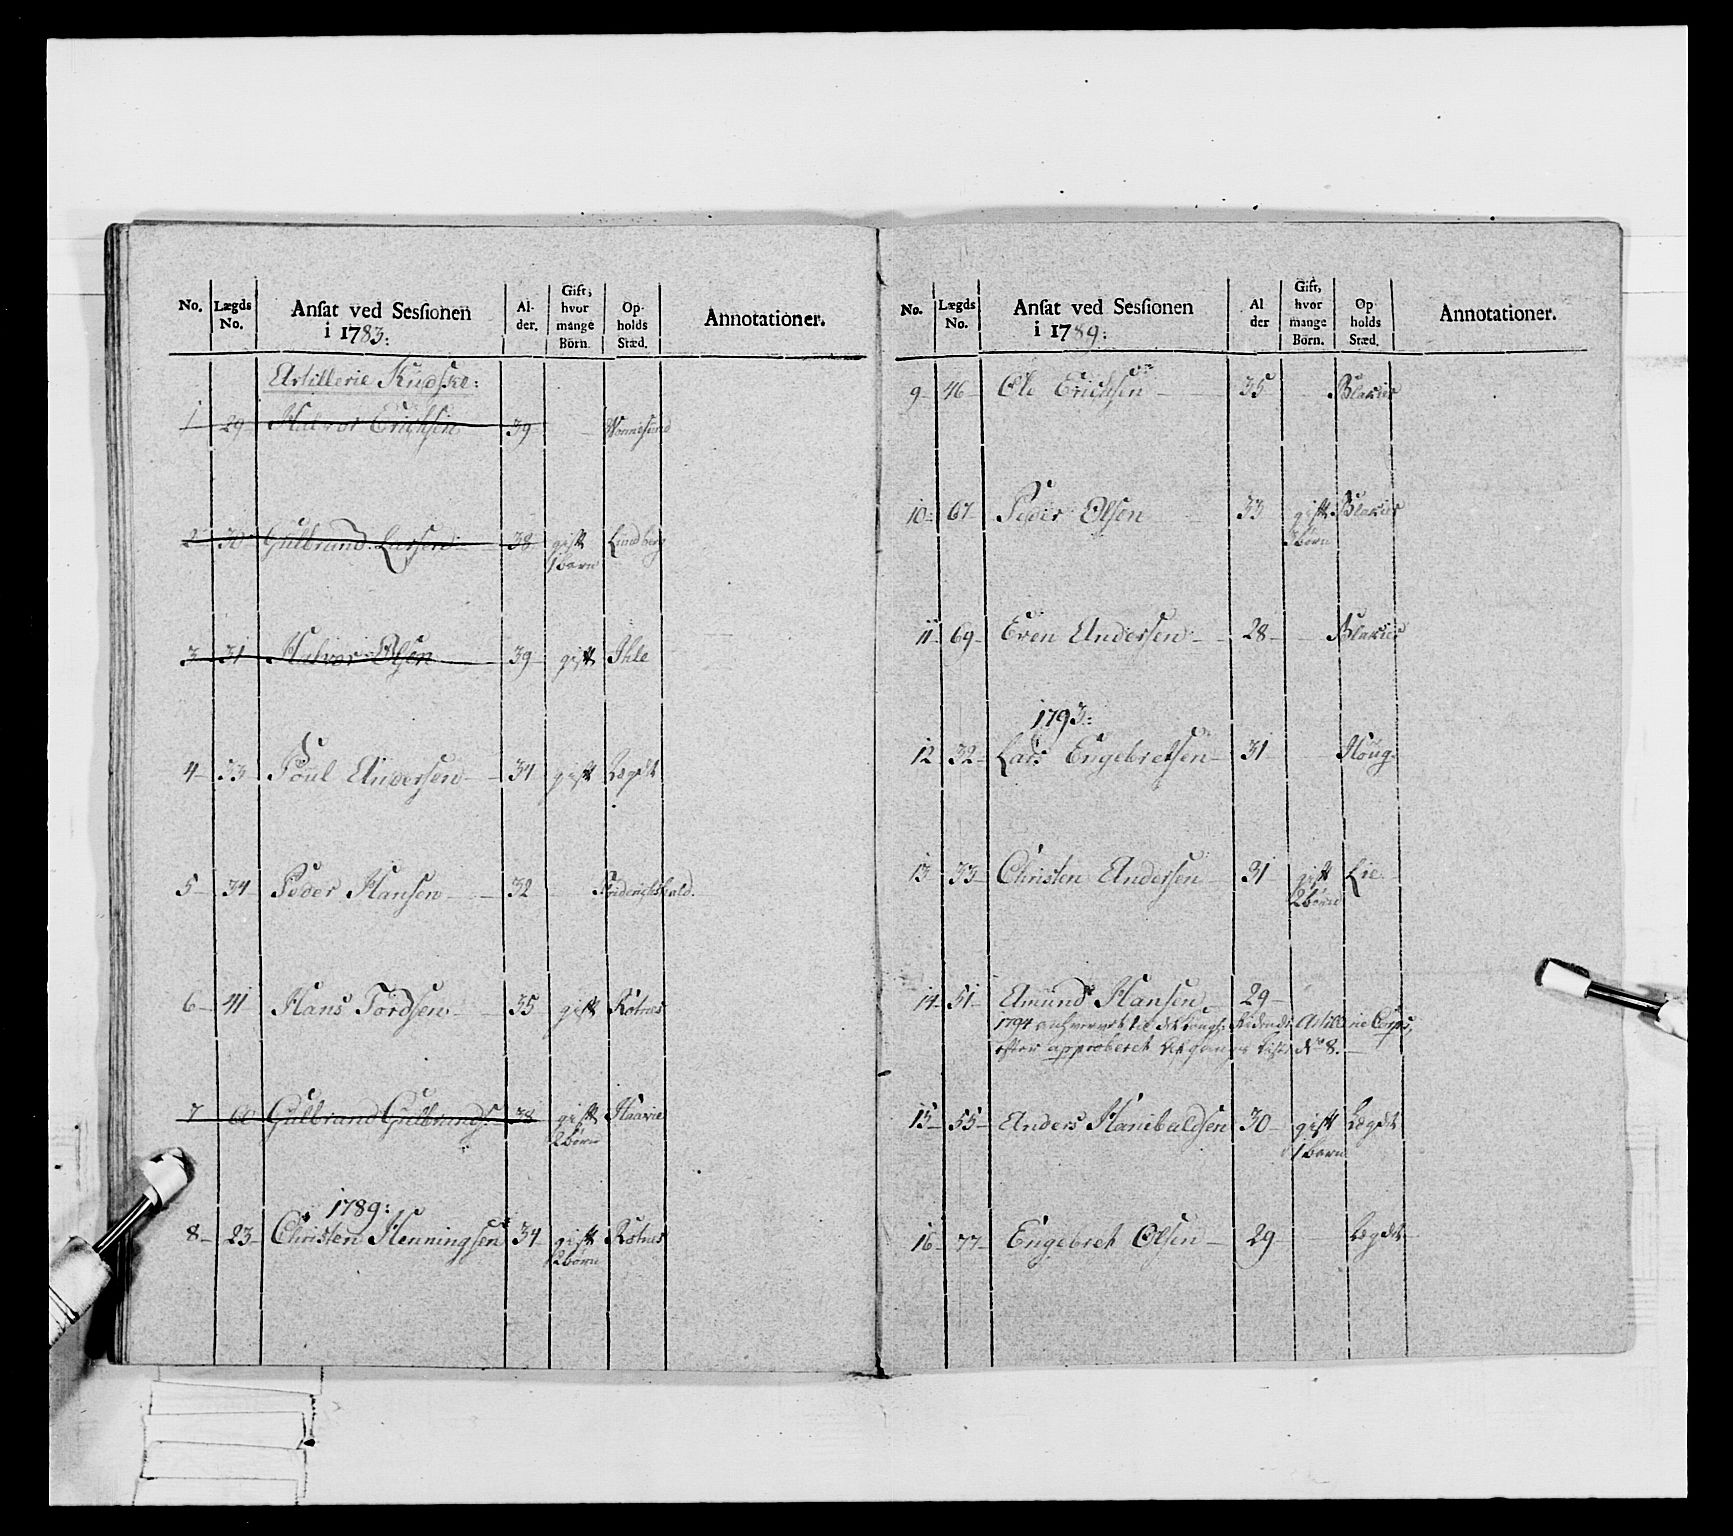 No. Lægds No. Ansat ved Sessionen i 1783: Al- der. Gift, hvor mange Börn. Op- holds Stæd. Annotationer.
Artillerie Kudske:
1 29 Halvor Erichsen 39 Wormesund
2 30 Gulbrand Larsen 38 gift Lundberg
1 barn
3 31 Halvor Olsen 39 gift Ihle
4 33 Poul Andersen 34 gift Lægdet
5 34 Peder Hansen 32 Friderichshald.
6 41 Hans Tordsen 35 gift Rotnes
7 60 Gulbrand Gulbrands: 38 gift Haavie
2 börn
1789:
8 23 Christen Henningsen 34 gift Rotnes
2 börn
No. Lægds No. Ansat ved Sessionen i 1789: Al der Gift, hvor mange Börn. Op holds Stæd. Annotationer.
9 46 Ole Erichsen 35 Blakier
10 67 Peder Olsen 33 gift Blakier
3 börn
11 69 Even Andersen 28 Blakier
1793:
12 32 Lars Engebretsen 31 Houg
13 33 Christen Andersen 31 gift Lie
2 börn
14 51 Amund Hansen 29
1794 til det Kongl: Ridende Artillerie Corps,
efter approberet Liste No 8.
15 55 Anders Hanibaldsen 30 gift Lægdet
1 barn
16 77 Engebret Olsen 29 Lægdet